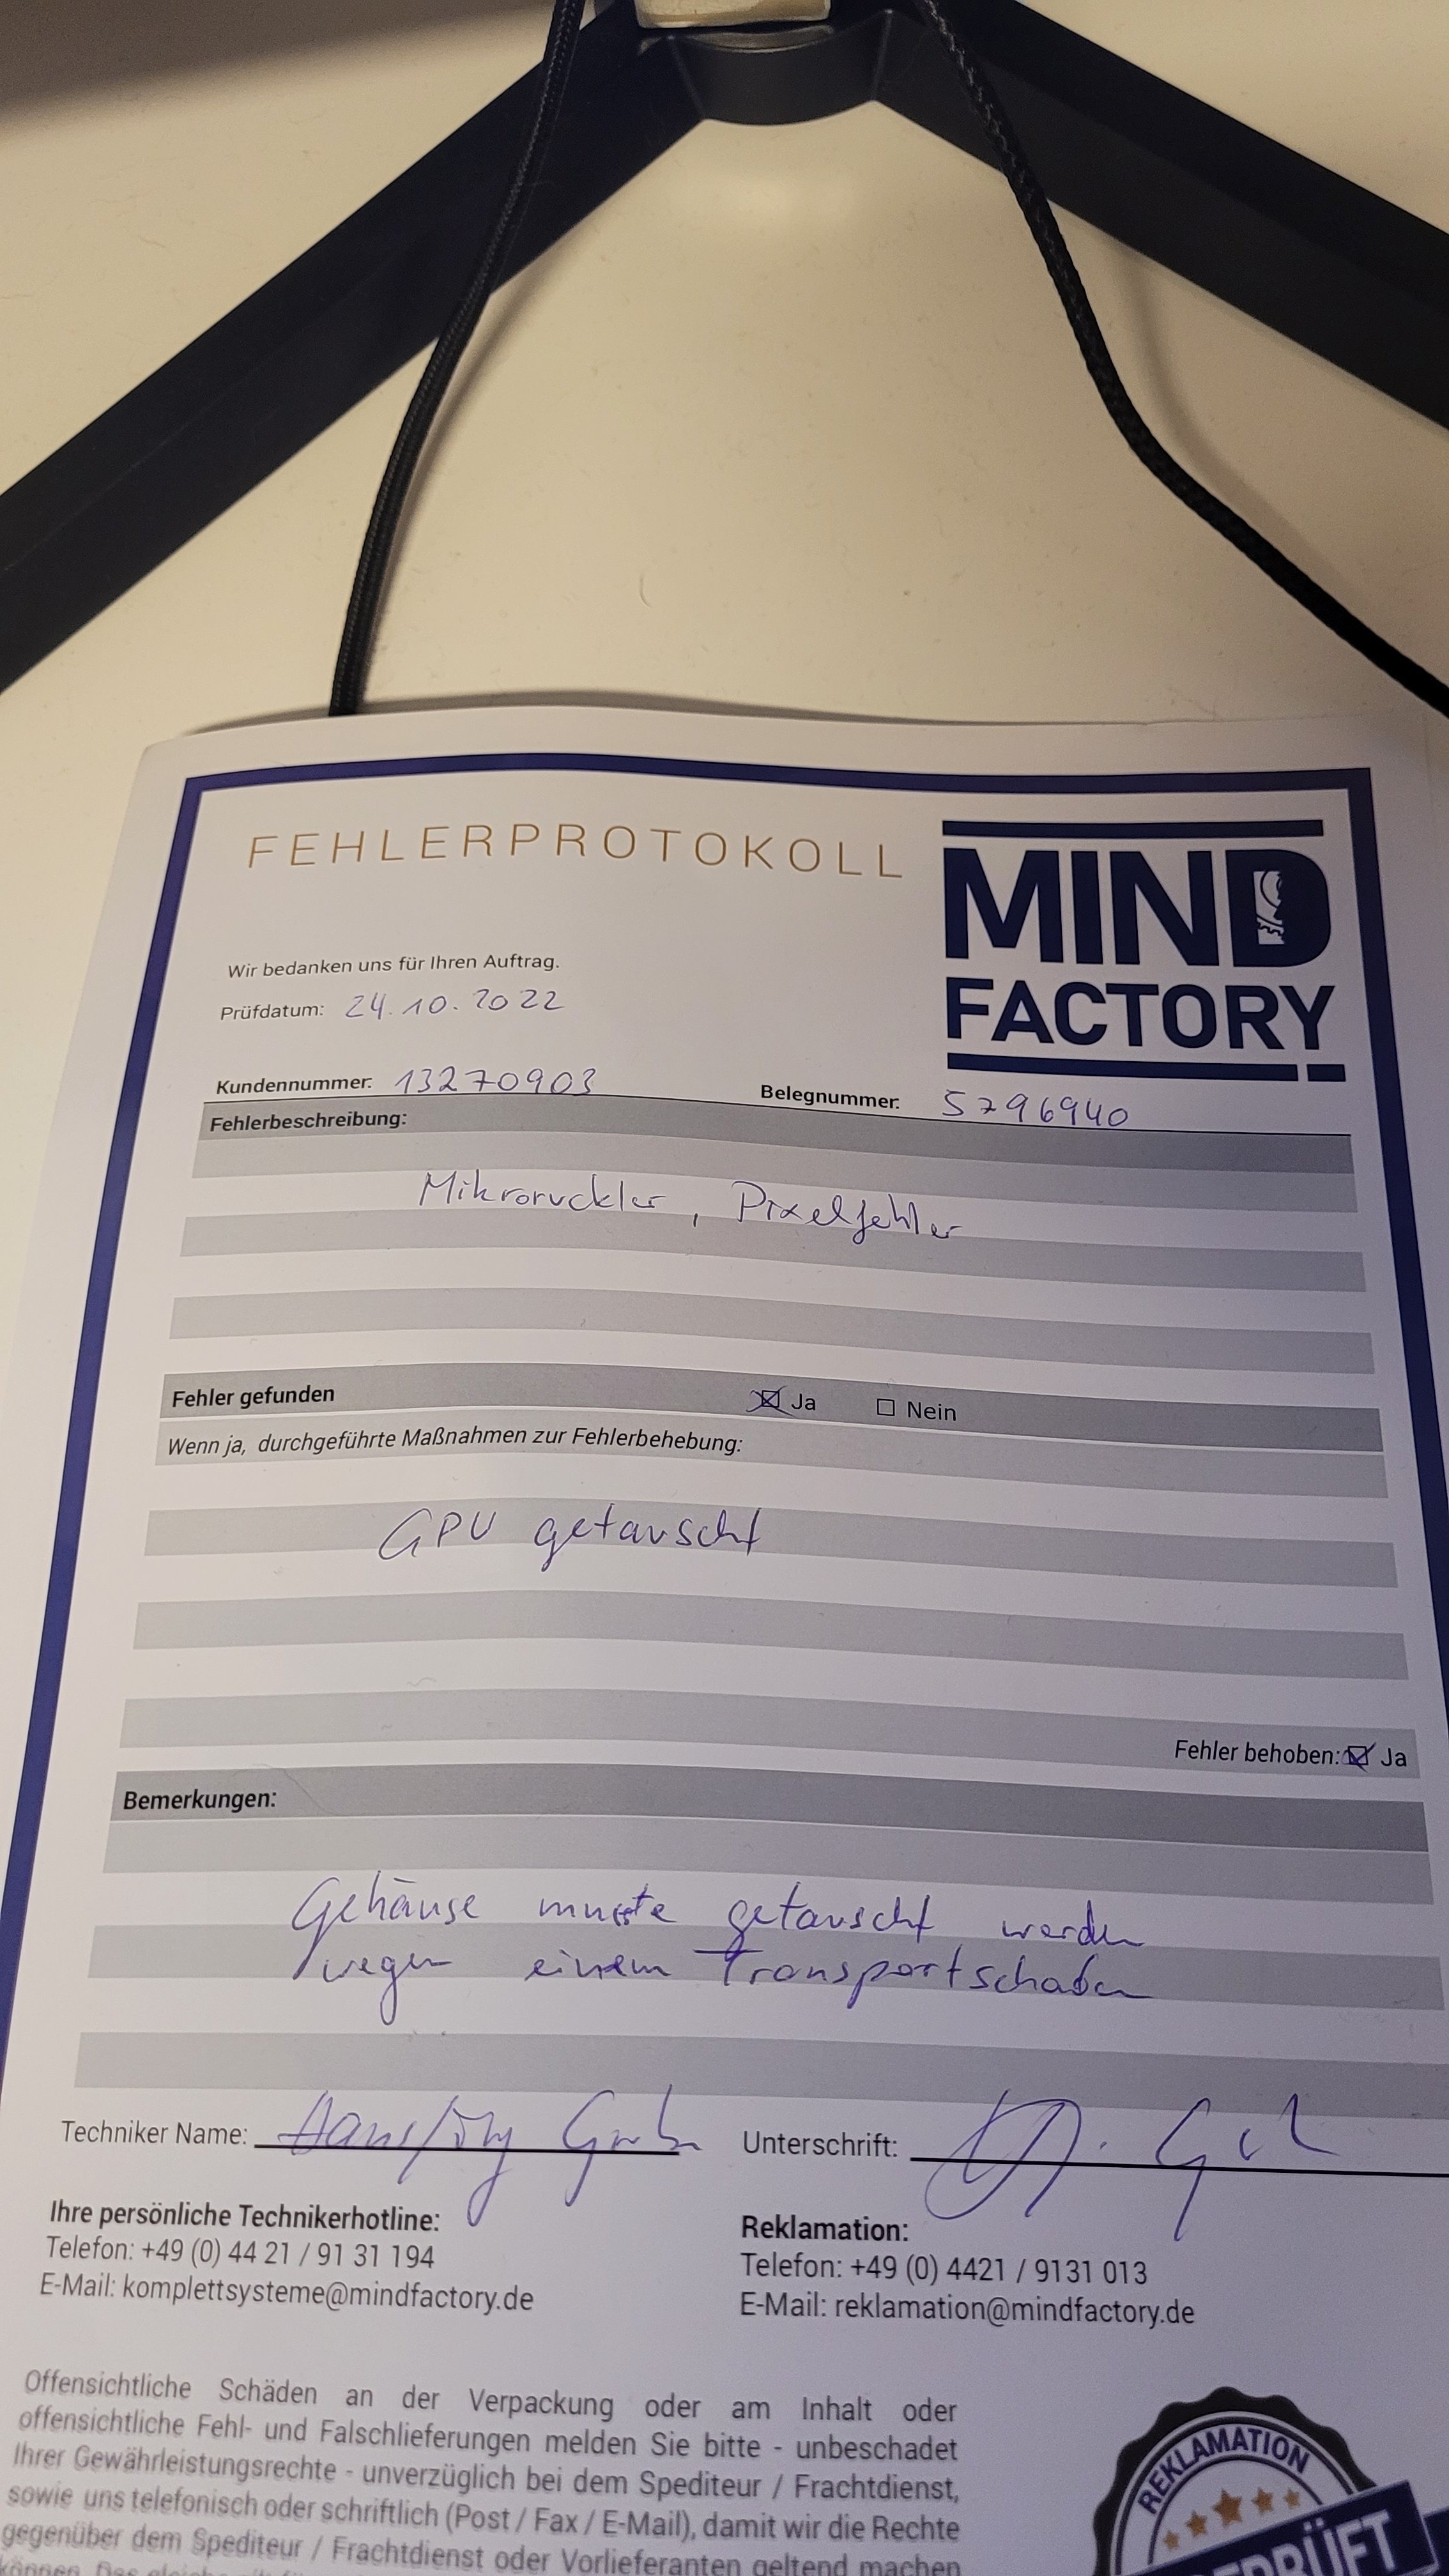 FEHLERPROTOKOLL
MIND
FACTORY
Wir bedanken uns für Ihren Auftrag.
Prüfdatum: 24.10.2022
Kundennummer: 13270903 Belegnummer: 5796940
Fehlerbeschreibung:
Mikroruckler, Pixelfehler
Fehler gefunden Ja Nein
Wenn ja, durchgeführte Maßnahmen zur Fehlerbehebung:
GPU getauscht
Fehler behoben: Ja
Bemerkungen:
Gehäuse musste getauscht werden
wegen einem Transportschaden
Techniker Name: Unterschrift:
Ihre persönliche Technikerhotline:
Telefon: +49 (0) 44 21 / 91 31 194
E-Mail: komplettsysteme@mindfactory.de
Reklamation:
Telefon: +49 (0) 4421 / 9131 013
E-Mail: reklamation@mindfactory.de
Offensichtliche Schäden an der Verpackung oder am Inhalt oder
offensichtliche Fehl- und Falschlieferungen melden Sie bitte - unbeschadet
Ihrer Gewährleistungsrechte - unverzüglich bei dem Spediteur / Frachtdienst,
sowie uns telefonisch oder schriftlich (Post / Fax / E-Mail), damit wir die Rechte
gegenüber dem Spediteur / Frachtdienst oder Vorlieferanten geltend machen
REKLAMATION